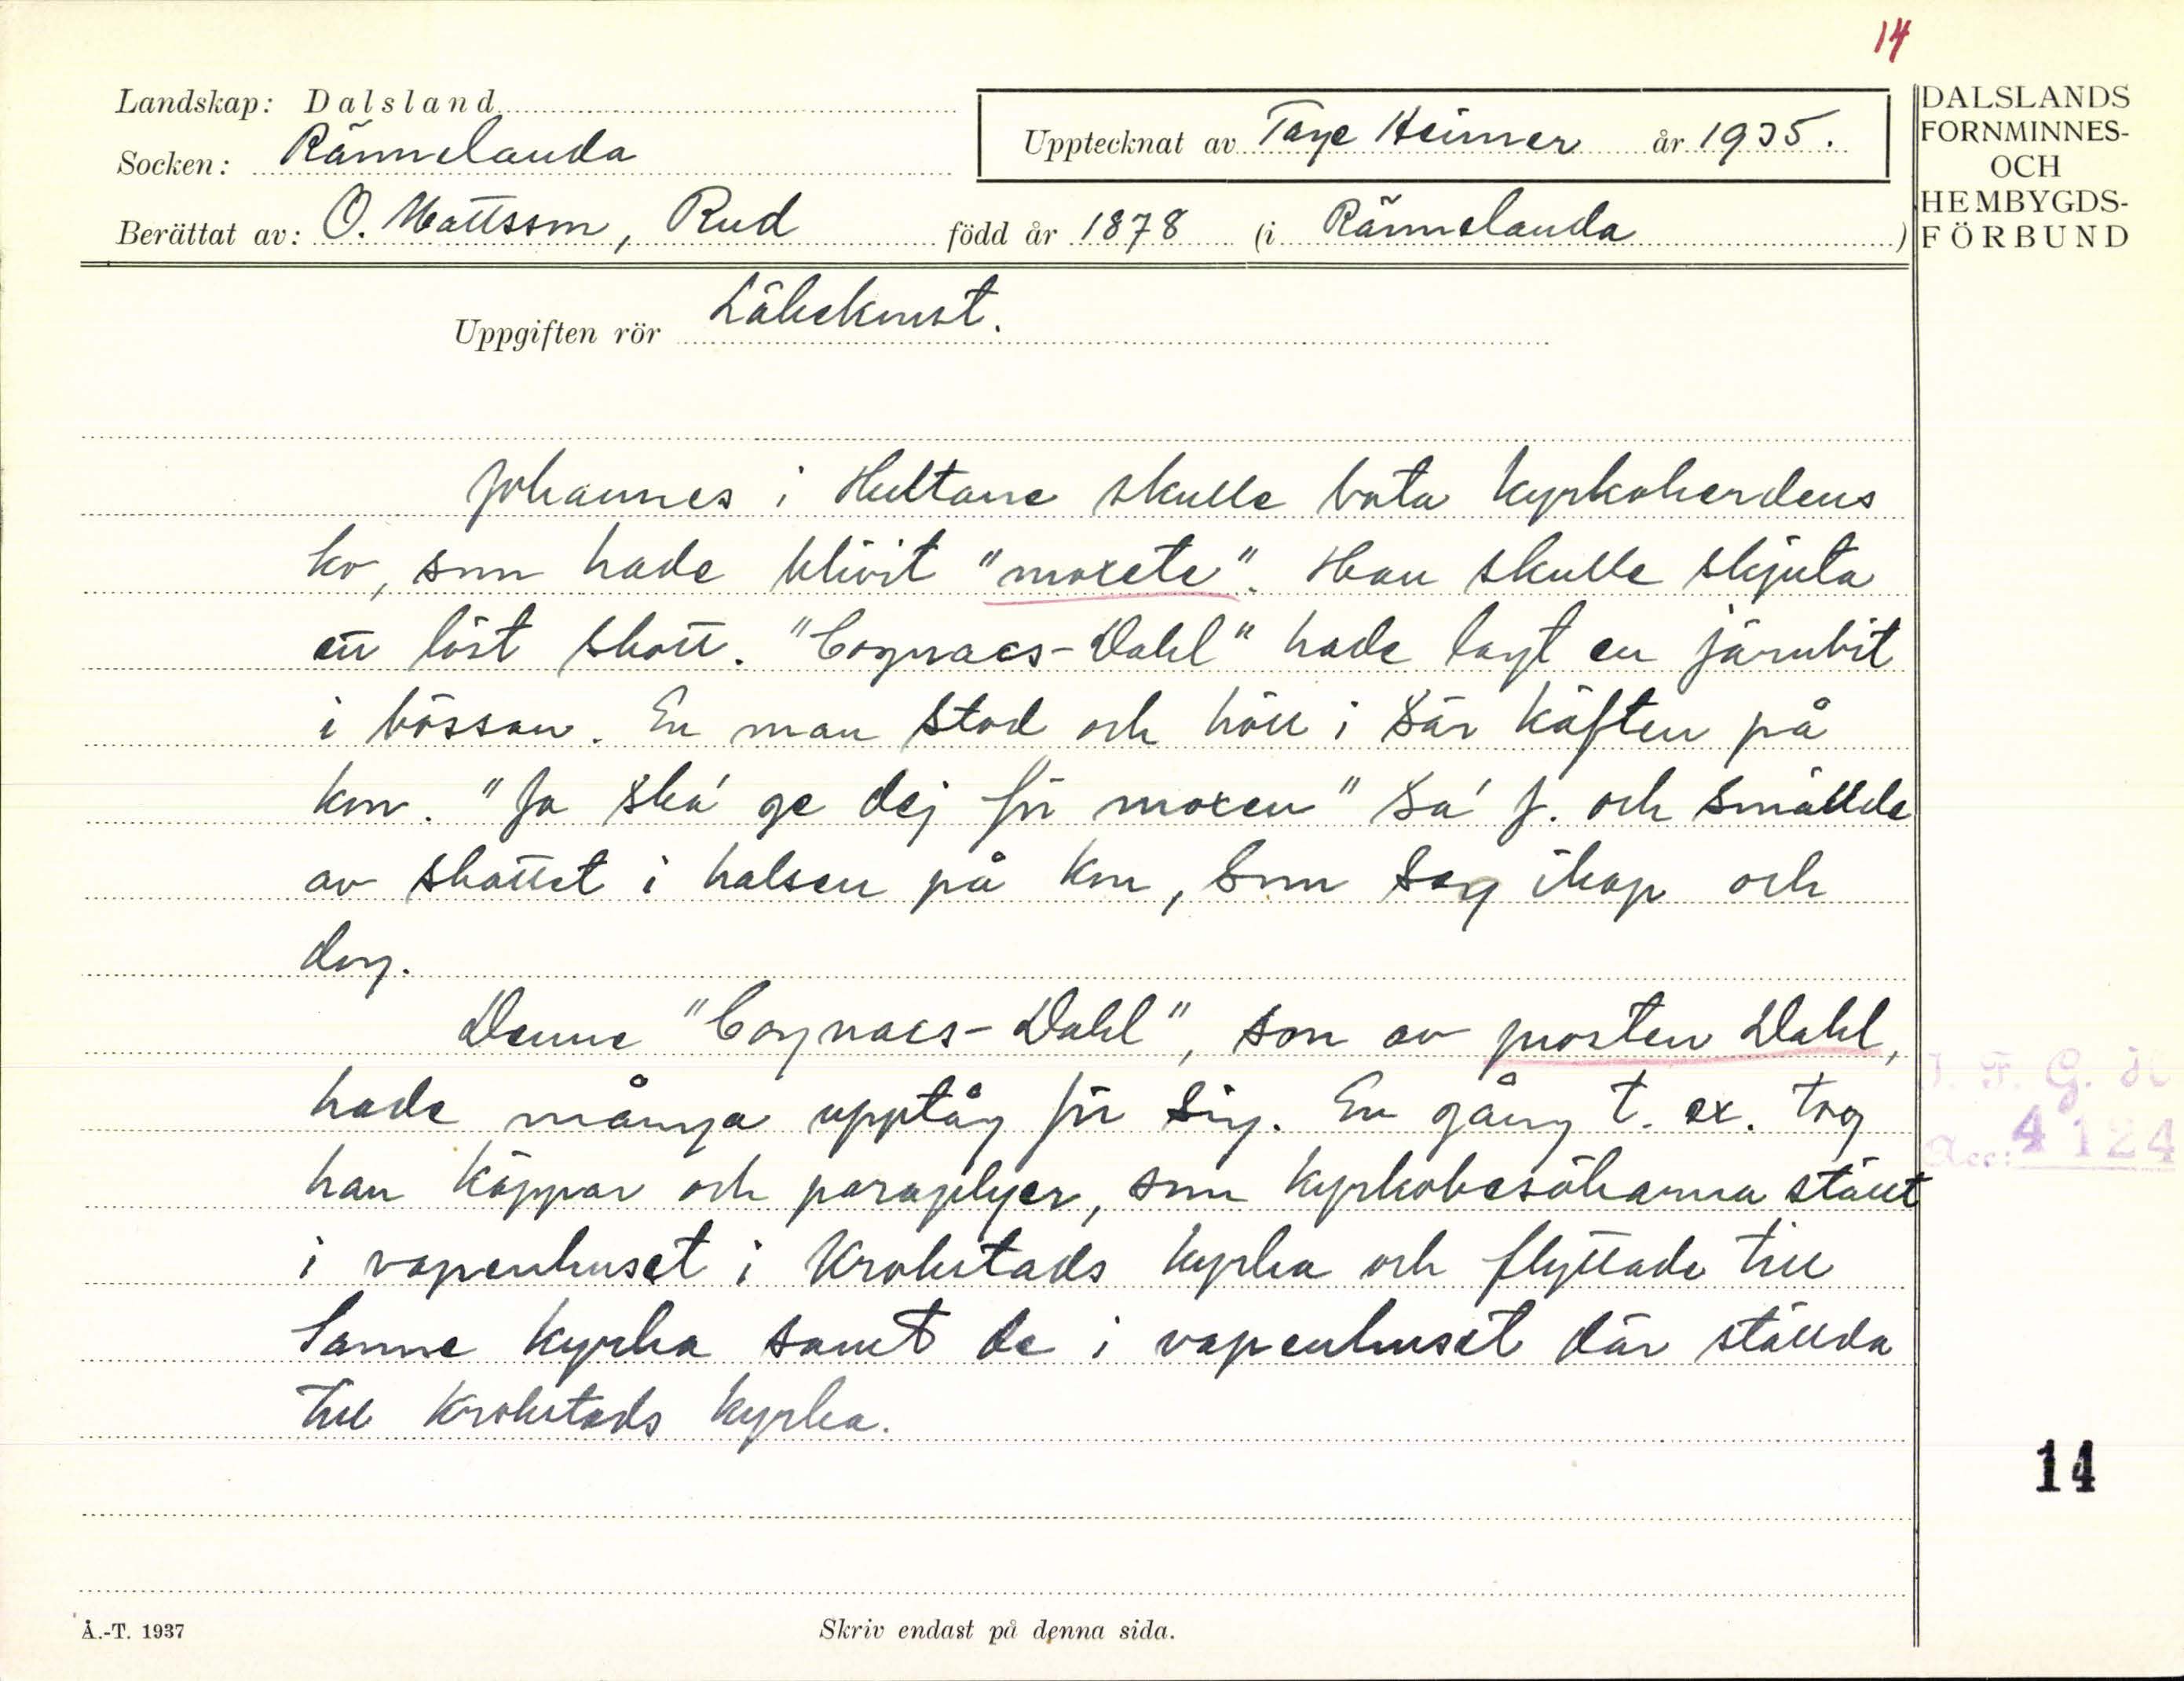 14
Landskap: Dalsland
Socken: Rännelanda
Upptecknat av Tage Heimer år 1935.
Berättat av: O. Mattsson, Rud född år 1878 (i Rännelanda )
DALSLANDS
FORNMINNES-
OCH
HEMBYGDS-
FÖRBUND
Uppgiften rör Läkekonst.
Johannes i Hultane skulle bota kyrkoherdens
ko, som hade blivit "moxete". Han skulle skjuta
ett löst skott. "Cognacs-Dahl" hade lagt en järnbit
i bössan. En man stod och höll i sär käften på
kon. "Ja ska' ge dej för moxen" sa' J. och smällde
av skottet i halsen på kon, som seg ihop och
dog.
Denne "Cognacs-Dahl", son av prosten Dahl,
hade många upptåg för sig. En gång t. ex. tog
han käppar och paraplyer, som kyrkobesökarna ställt
i vapenhuset i Krokstads kyrka och flyttade till
Sanne kyrka samt de i vapenhuset där ställda
till Krokstads kyrka.
I. F. G. H
Acc: 4124
14
Å.-T. 1937
Skriv endast på denna sida.